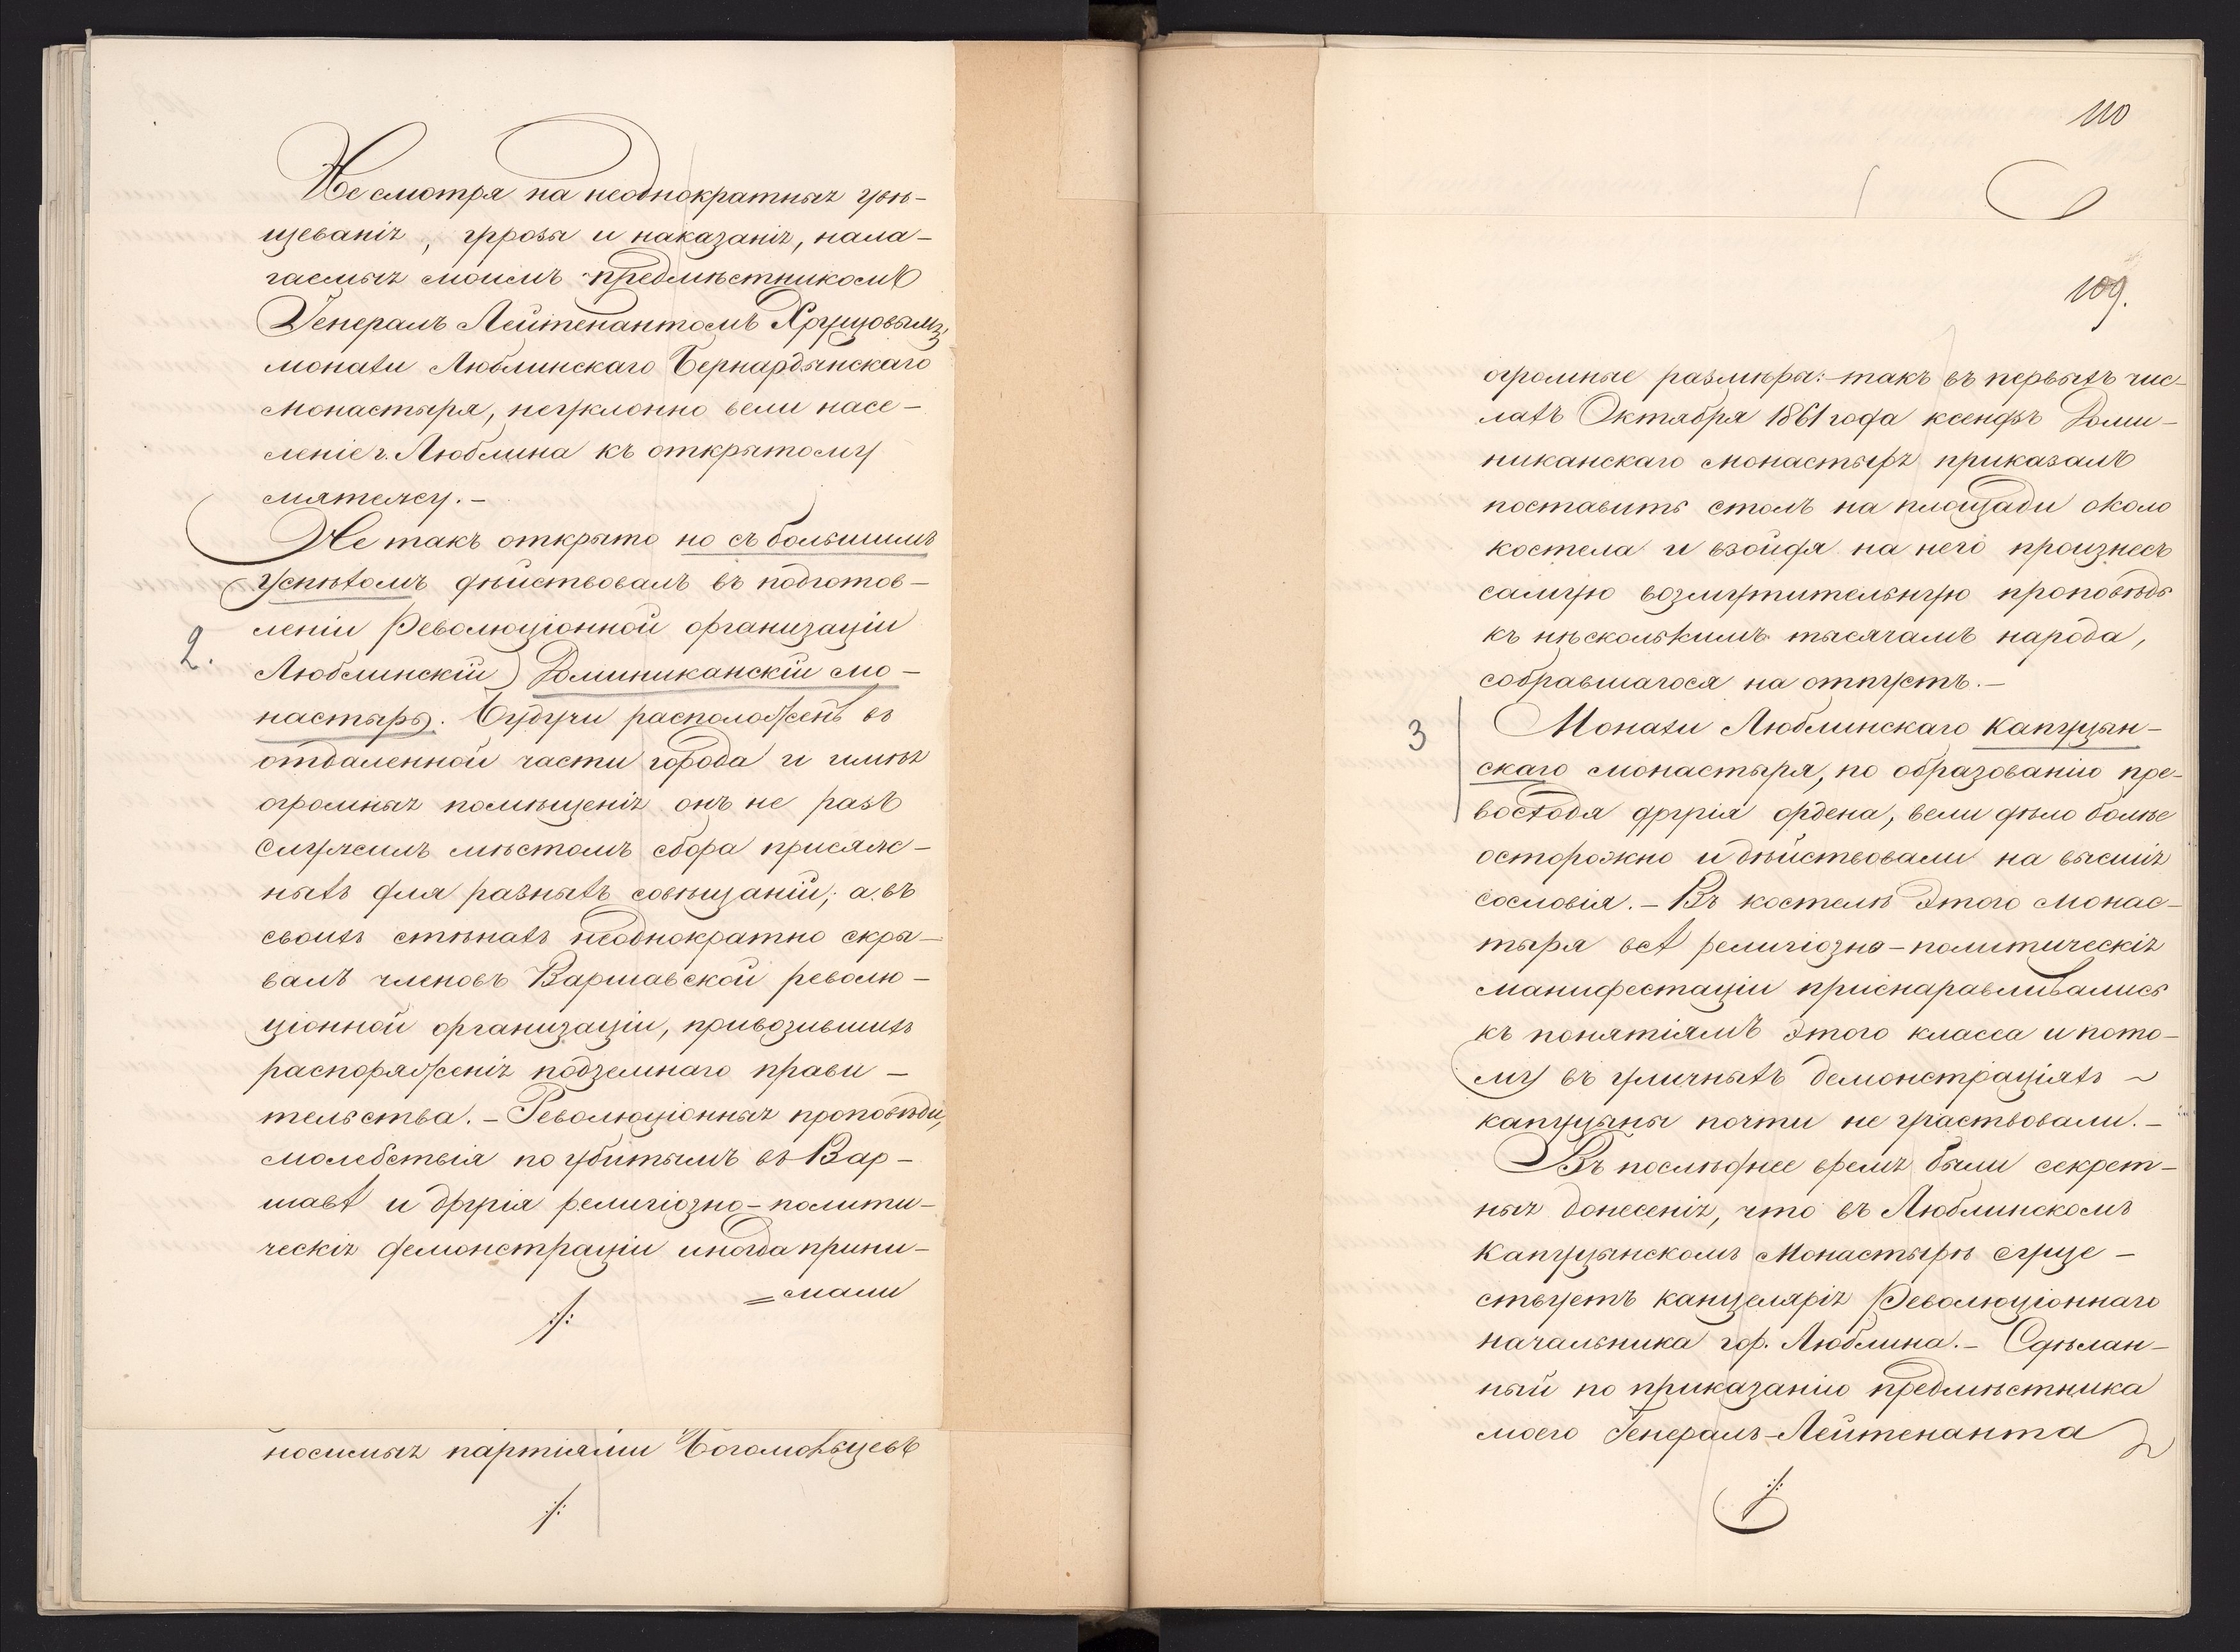 Не смотря на неоднократныя увѣ-
щеванія, угрозы и наказанія, нала-
гаемыя моимъ предмѣстникомъ
Генералъ Лейтенантомъ Хрущовымъ,
монахи Люблинскаго Бернардынскаго
монастыря, неуклонно вели насе-
леніе г. Люблина къ открытому
мятежу.-
Не такъ открыто но съ большимъ
успѣхомъ дѣйствовалъ въ подготов-
2.
леніи Революціонной организаціи
Люблинскій Доминиканскій мо-
настырь. Будучи расположенъ въ
отдаленной части города и имѣя
огромныя помѣщенія онъ не разъ
служилъ мѣстомъ сбора присяж-
ныхъ для разныхъ совѣщаній; а въ
своихъ стѣнахъ неоднократно скры-
валъ членовъ Варшавской револю-
ціонной организаціи, привозившихъ
распоряженія подземнаго прави-
тельства.- Революціонныя проповѣди,
молебствія по убитымъ въ Вар-
шавѣ и другія религіозно-полити-
ческія демонстраціи иногда прини-
=мали
./.
носимыя партіями Богомольцевъ
./.
110
109.
огромные размѣры:- такъ въ первыхъ чис-
лахъ Октября 1861 года ксендзъ Доми-
никанскаго монастыря приказалъ
поставить столъ на площади около
костела и взойдя на него произнесъ
самую возмутительную проповѣдь
къ нѣсколькимъ тысячамъ народа,
собравшагося на отпустъ.-
3
Монахи Люблинскаго Капуцын-
скаго монастыря, по образованію пре-
восходя другія ордена, вели дѣло болѣе
осторожно и дѣйствовали на высшія
сословія.- Въ костелѣ этого монас-
тыря всѣ религіозно-политическія
манифестаціи приснаравливались
къ понятіямъ этого класса и пото-
му въ уличныхъ демонстраціяхъ ~
капуцыны почти не участвовали.-
Въ послѣднее время были секрет-
ныя донесенія, что въ Люблинскомъ
Капуцынскомъ Монастырѣ суще-
ствуетъ канцелярія Революціоннаго
начальника гор. Люблина.- Сдѣлан-
ный по приказанію предмѣстника
моего Генералъ-Лейтенанта
./.